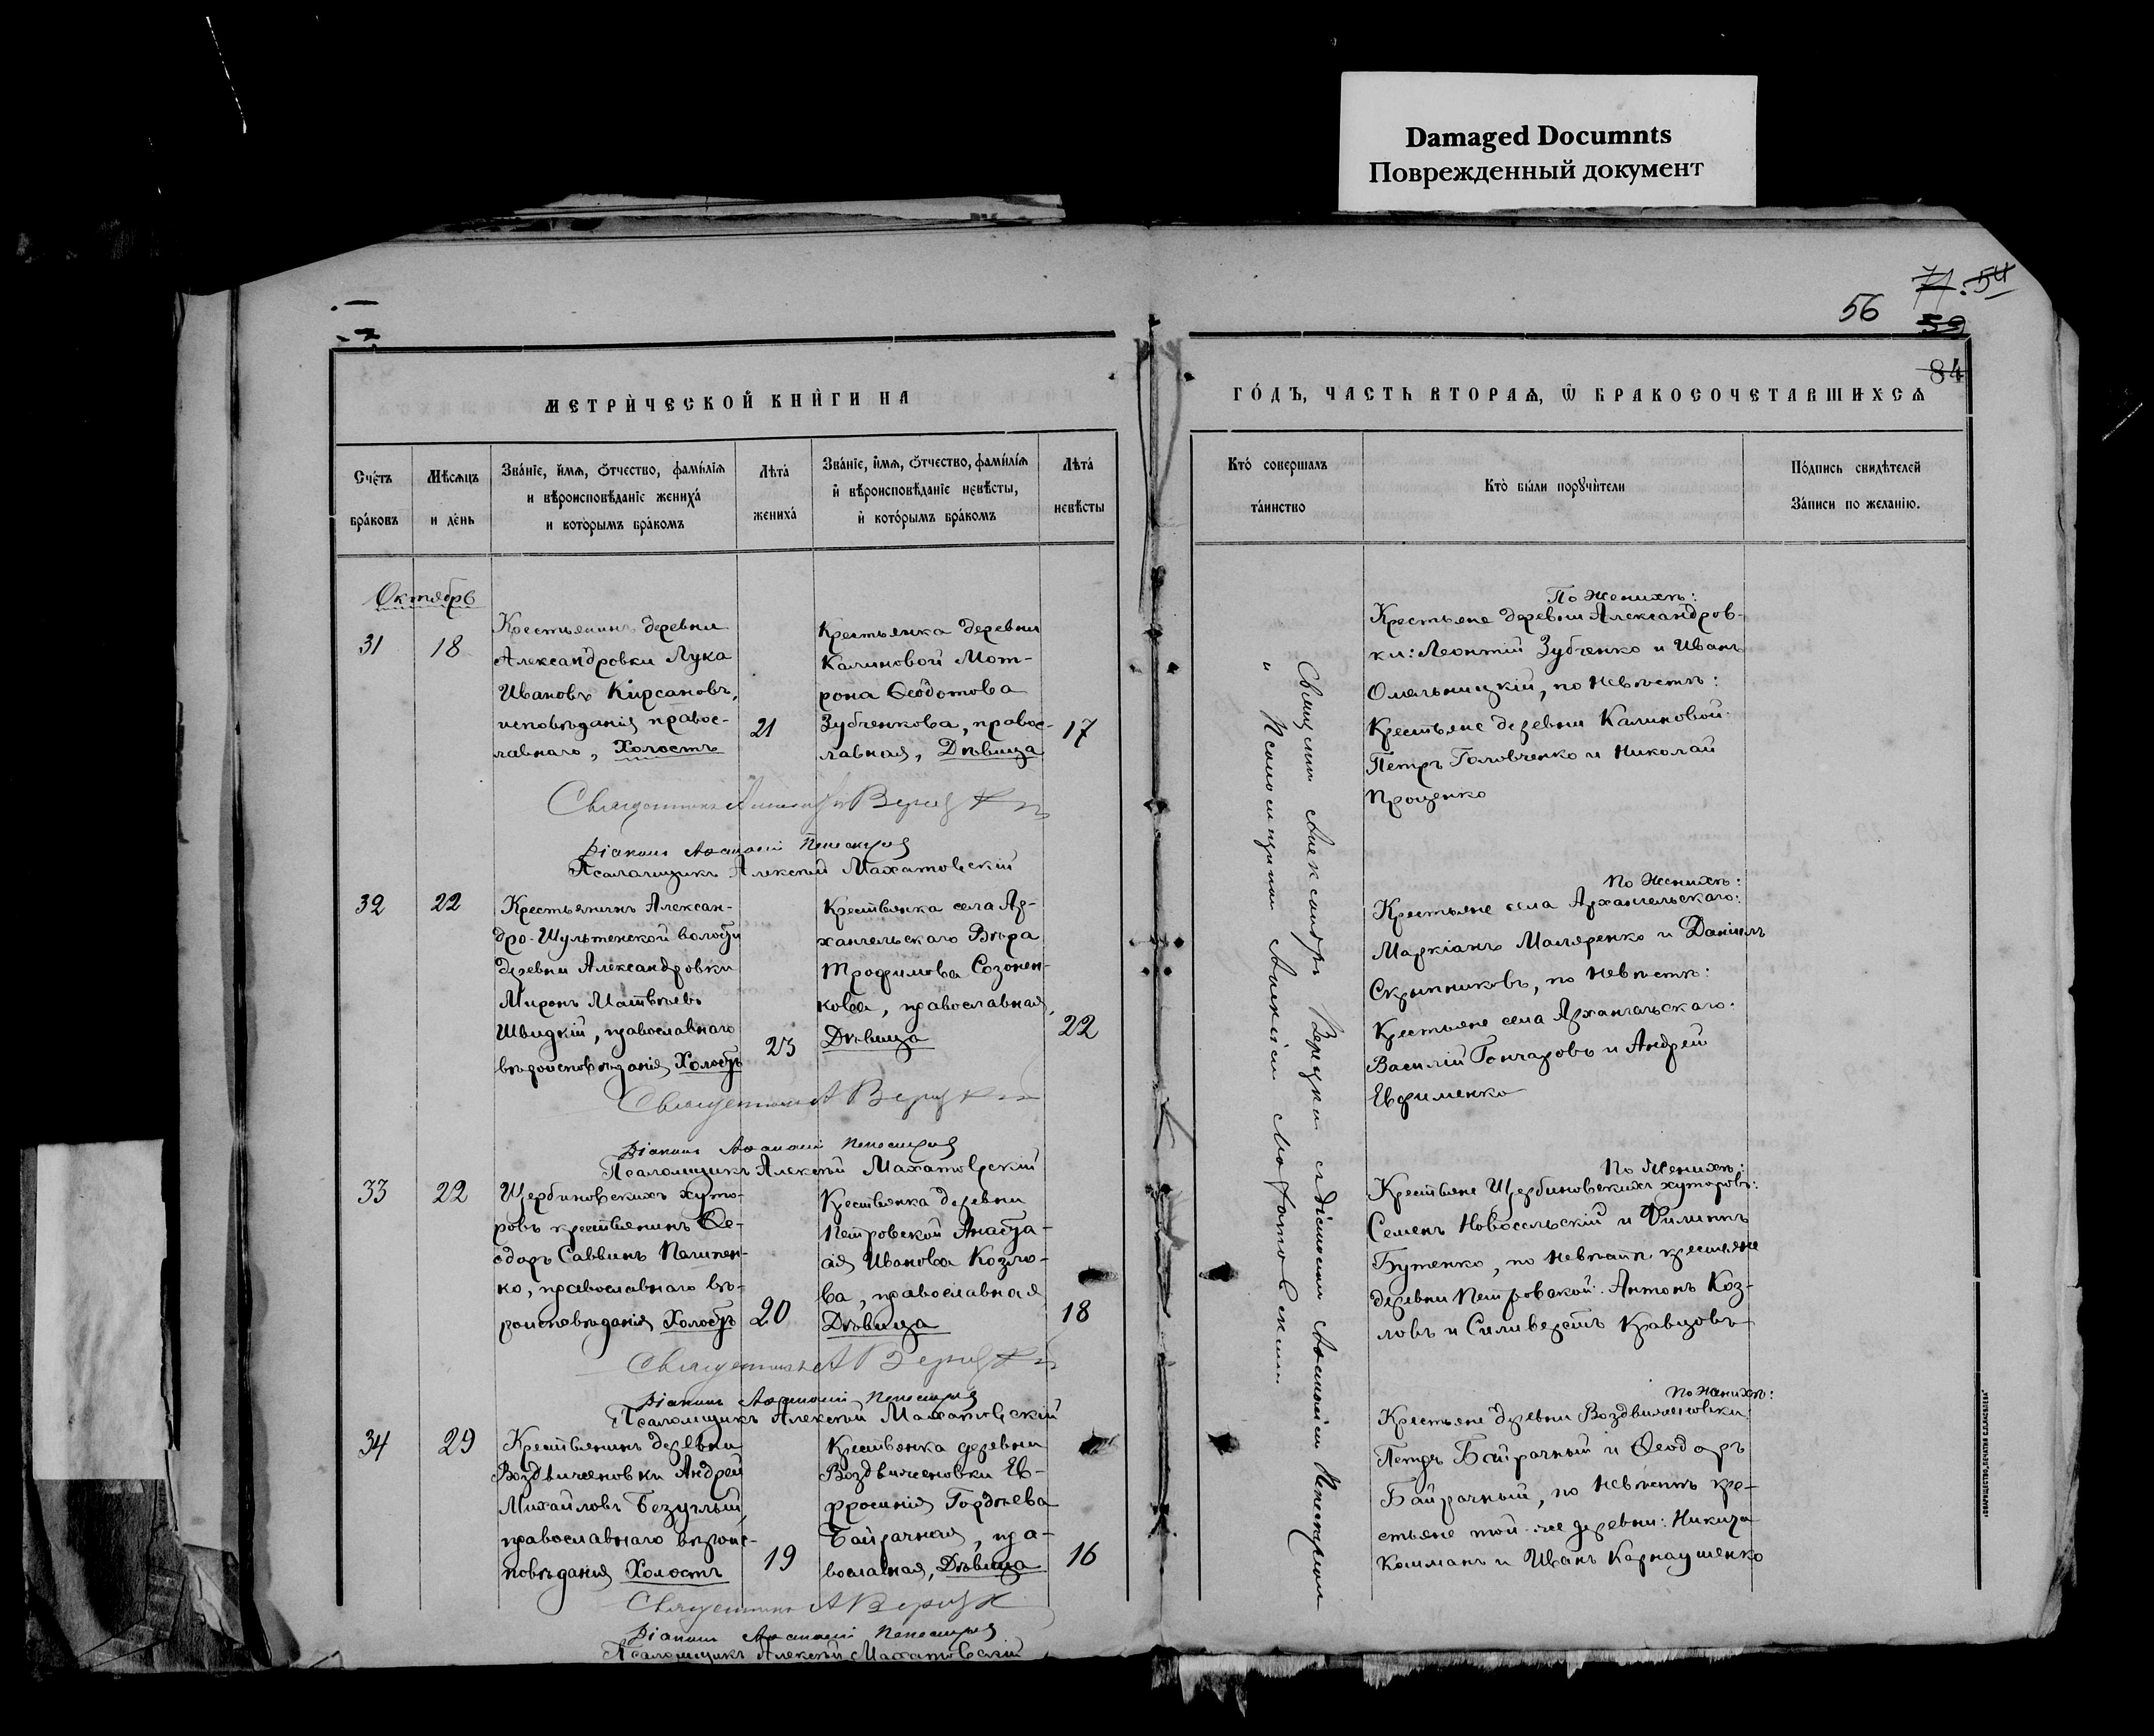 Damaged Documnts
Поврежденный документ
56
71. 54
59
84
МЕТРИ́ЧЕСКОЙ КНИ́ГИ НА
ГО́ДЪ, ЧАСТЬ ВТОРАѦ, Ѿ БРАКОСОЧЕТАВШИХСѦ
Сче́тъ
бра́ковъ
Мѣ́сѧцъ
и де́нь
Зва́нїе, и́мѧ, ѻ́тчество, фами́лїѧ
и вѣроисповѣ́данїе жениха́
и кото́рымъ бра́комъ
Лѣта́
жениха́
Зва́нїе, и́мѧ, ѻ́тчество, фами́лїѧ
и вѣроисповѣ́данїе невѣ́сты,
и кото́рымъ бра́комъ
Лѣта́
невѣ́сты
Кто̀ соверша́лъ
та́инство
Кто̀ бы́ли порꙋчи́тели
По́дпись свидѣ́телей
За́писи по жела́нїю.
Октябрь
31
18
Крестьянинъ деревни
Александровки Лука
Ивановъ Кирсановъ,
исповѣданія правос-
лавнаго, Холостъ
21
Крестьянка деревни
Калиновой Мот-
рона Ѳеодотова
Зубченкова, правос-
лавная, Дѣвица
17
По Женихѣ:
Крестьяне деревни Александров-
ки: Леонтій Зубченко и Иванъ
Омельницкій, по Невѣстѣ:
Крестьяне деревни Калиновой:
Петръ Головченко и Николай
Проценко
Священникъ Верецкій
Діаконъ
Псаломщикъ Алексѣй Махатовскій
32
22
Крестьянинъ Алексан-
дро-Шультенской волости
деревни Александровки
Миронъ Матвѣевъ
Швидкій, православнаго
вѣроисповѣданія Холостъ
23
Крестьянка села Ар-
хангельскаго Вѣра
Трофимова Созонен-
кова, православная,
Дѣвица
22
По Женихѣ:
Крестьяне села Архангельскаго:
Маркіанъ Маляренко и Даніилъ
Скрыпниковъ, по Невѣстѣ:
Крестьяне села Архангельскаго:
Василій Гончаровъ и Андрей
Евфименко
Священникъ А Верецкій
Діаконъ
Псаломщикъ Алексѣй Махатовскій
33
22
Щербиновскихъ хуто-
ровъ крестьянинъ Ѳе-
одоръ Саввинъ Пилипен-
ко, православнаго вѣ-
роисповѣданія Холостъ
20
Крестьянка деревни
Петровской Анаста-
сія Иванова Козло-
ва, православная
Дѣвица
18
По Женихѣ:
Крестьяне Щербиновскихъ хуторовъ:
Семенъ Новосельскій и Филиппъ
Бутенко, по невѣстѣ крестьяне
деревни Петровской: Антонъ Коз-
ловъ и Силиверстъ Кравцовъ
Священникъ А Верецкій
Діаконъ
Псаломщикъ Алексѣй Махатовскій
34
29
Крестьянинъ деревни
Воздвиженовки Андрей
Михайловъ Безуглый,
православнаго вѣроис-
повѣданія Холостъ
19
Крестьянка деревни
Воздвиженовки Ев-
фросинія Гордѣева
Байрачная, пра-
вославная, Дѣвица
16
По Женихѣ:
Крестьяне деревни Воздвиженовки:
Петръ Байрачный и Ѳеодоръ
Байрачный, по Невѣстѣ кре-
стьяне той-же деревни: Никита
Кошманъ и Иванъ Карнаушенко
Священникъ А Верецк
Діаконъ
Псаломщикъ Алексѣй Махатовскій
Священник Александръ Верецкій съ Діакономъ
" Псаломщикомъ Алексѣем Махатовскимъ